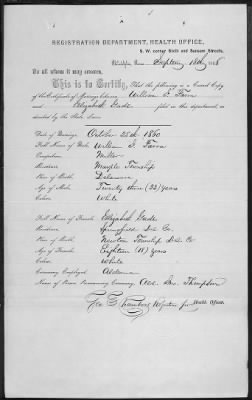 REGISTRATION DEPARTMENT, HEALTH OFFICE,
S. W. corner Sixth and Sansom Streets,
Philadelphia, Penna.
To all whom it may concern,
This is to Certify, That the following is a Correct Copy
of the Certificate of Marriage between William
and Elizabeth filed in this department, as
directed by the State Laws.
Date of Marriage October 25th 1860
Full Name of Male William
Occupation Miller
Residence Township
Place of Birth Delaware
Age of Male Twenty three (23) years
Colour White
Full Name of Female Elizabeth
Residence Springfield Del Co.
Place of Birth Newton Township Del. Co.
Age of Female Eighteen (18) years
Colour White
Ceremony Employed Alderman
Name of Person Pronouncing Ceremony Ald. Thompson
Geo. E. Chambers Registrar for Health Officer.